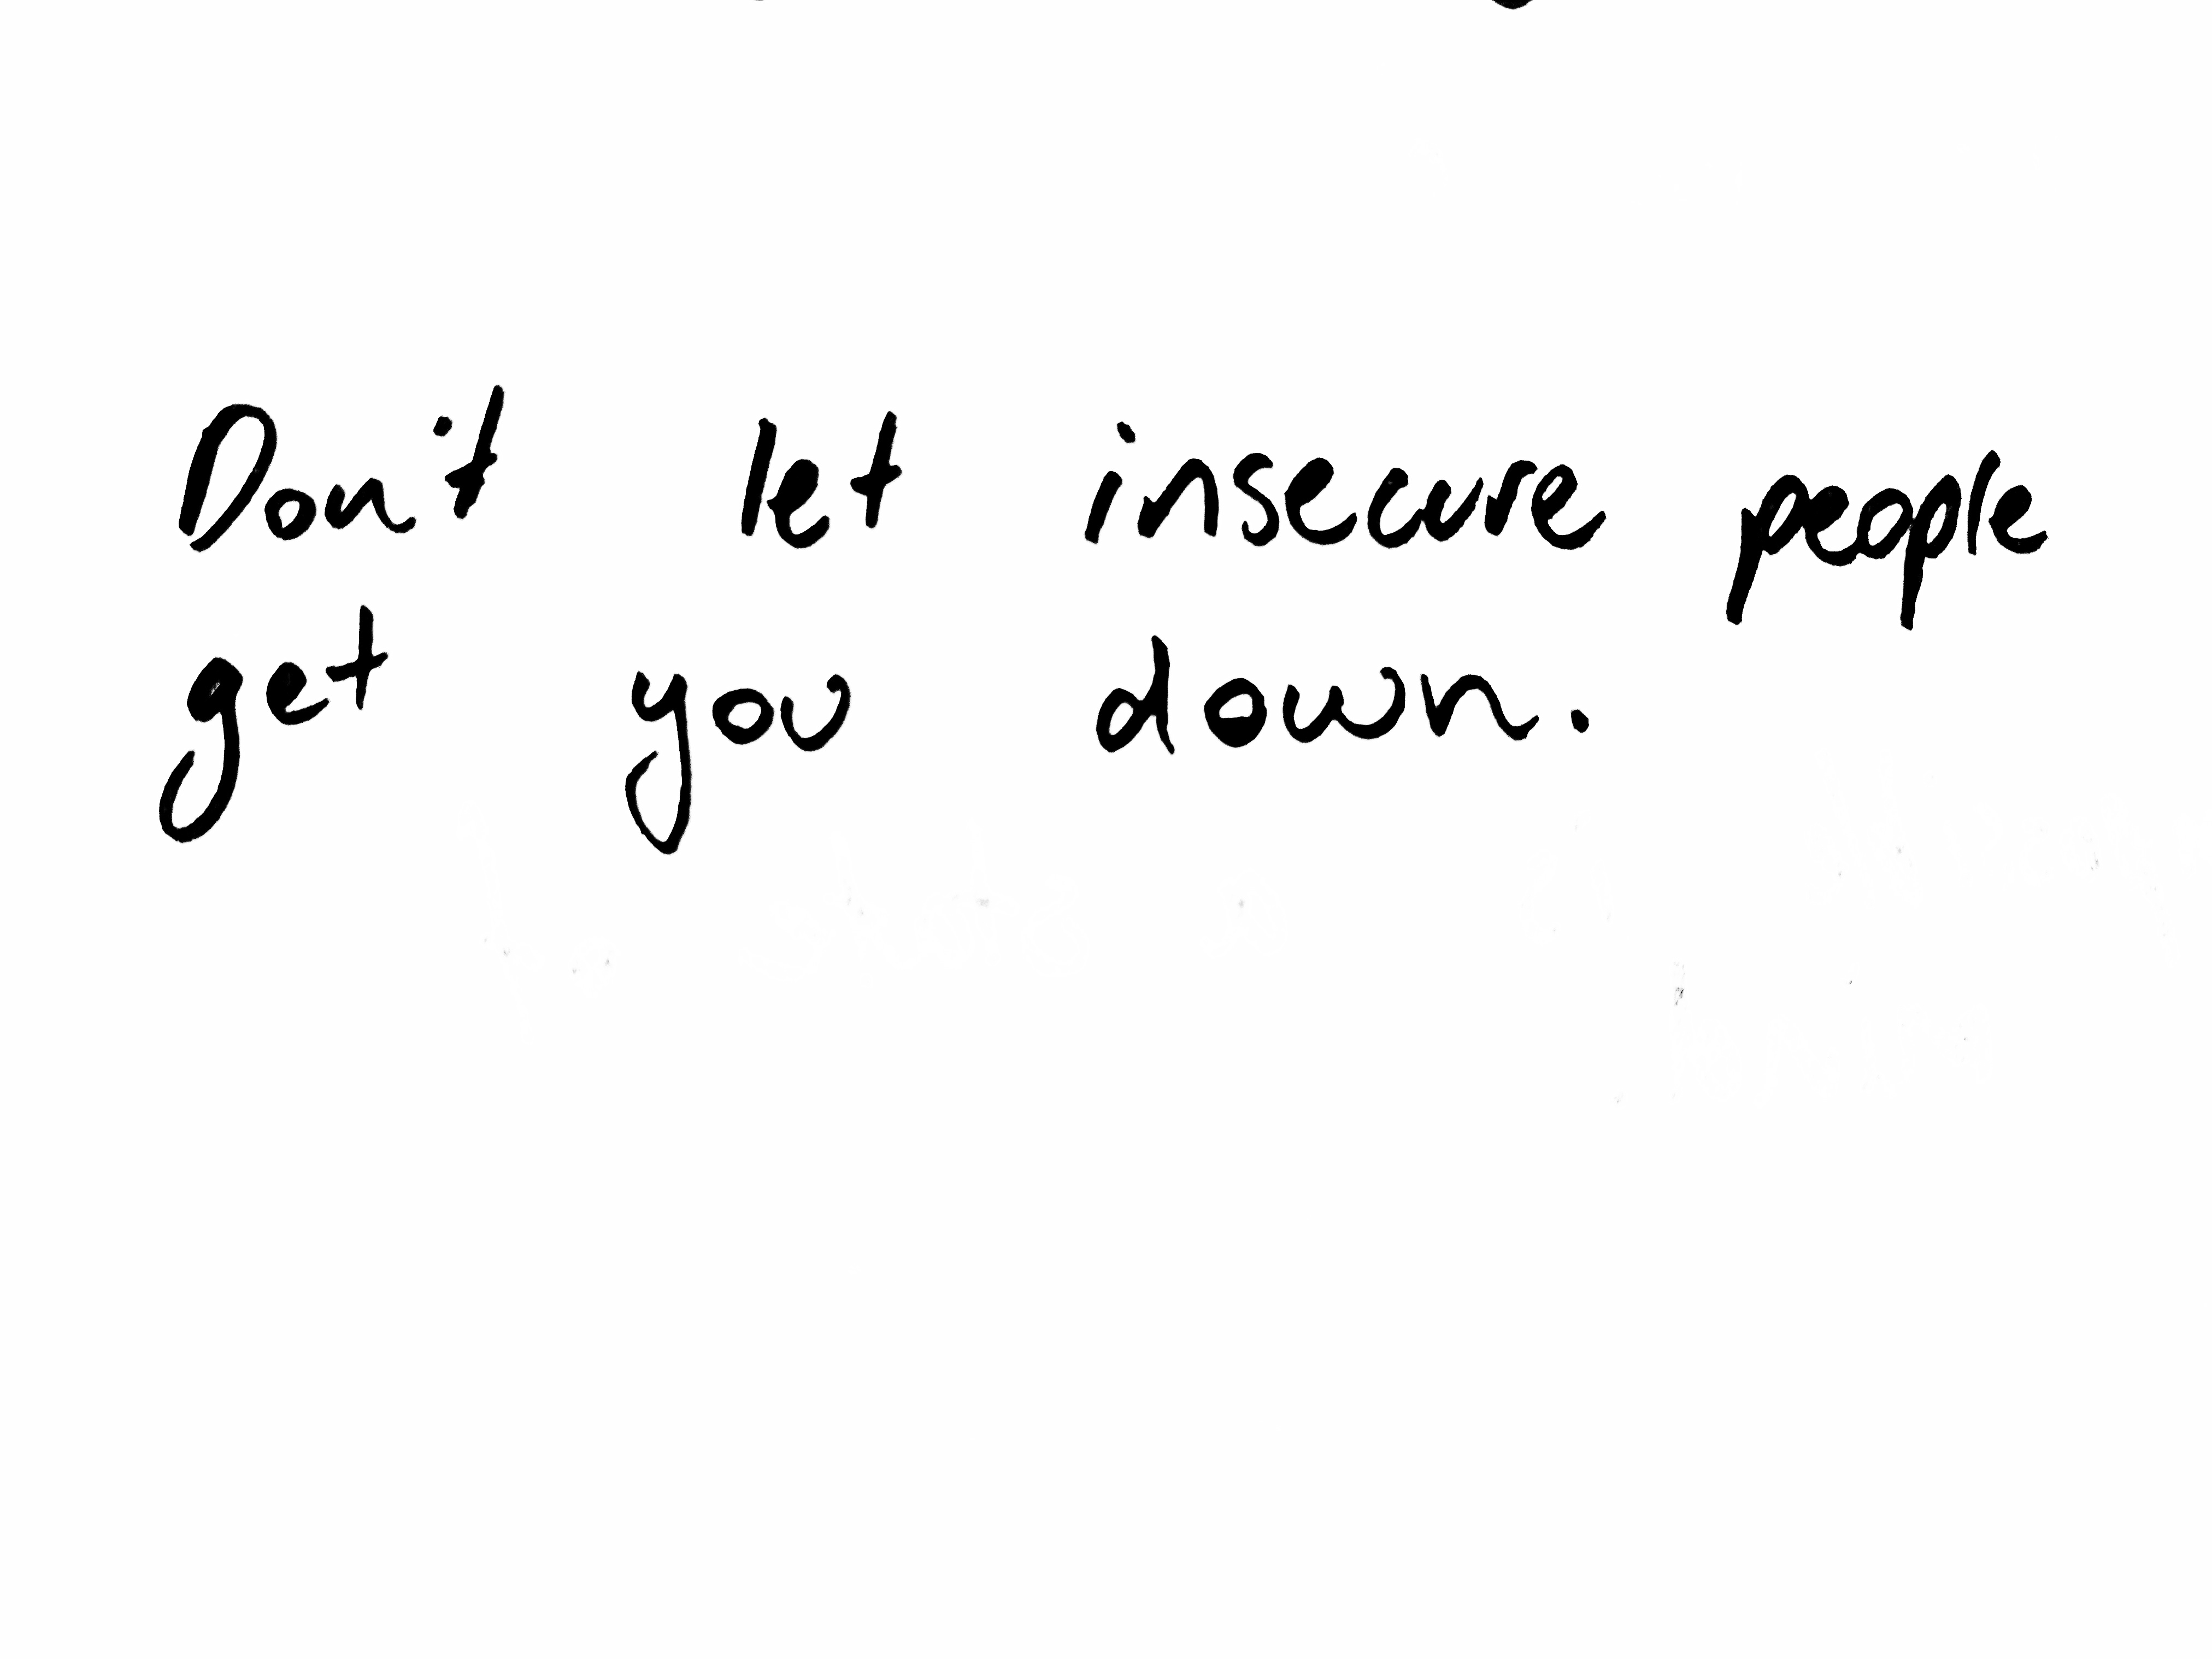 Don't let insecure people
get you down.